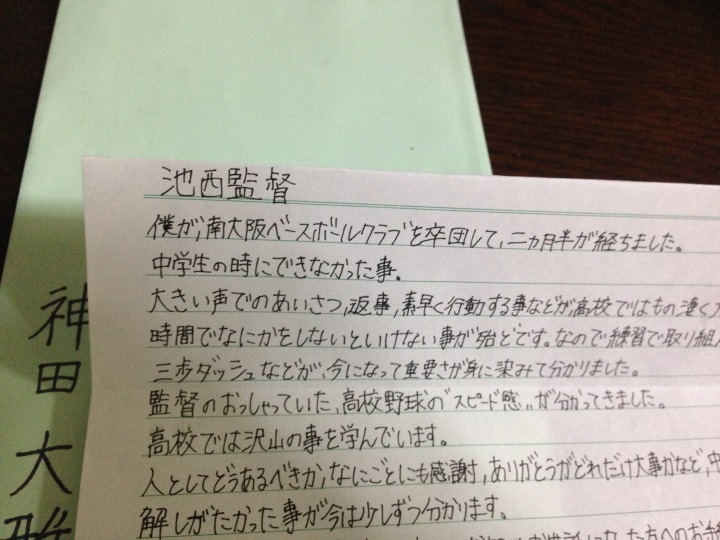 池西監督
僕が、南大阪ベースボールクラブを卒団して、二カ月半が経ちました。
中学生の時にできなかった事、
大きい声でのあいさつ、返事、素早く行動する事などが高校ではもの凄く
時間でなにかをしないといけない事が殆どです。なので練習で取り組
三歩ダッシュなどが、今になって重要さが身に染みて分かりました。
監督のおっしゃっていた、高校野球の"スピード感"が分かってきました。
高校では沢山の事を学んでいます。
人としてどうあるべきか、なにごとにも感謝、ありがとうがどれだけ大事かなど、中
解しがたかった事が今は少しずつ分かります。
神田 大